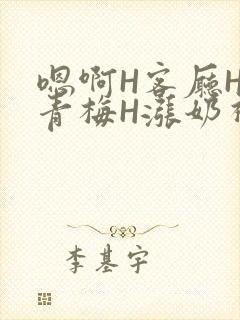 嗯啊H客厅H
青梅H涨奶
李基宇